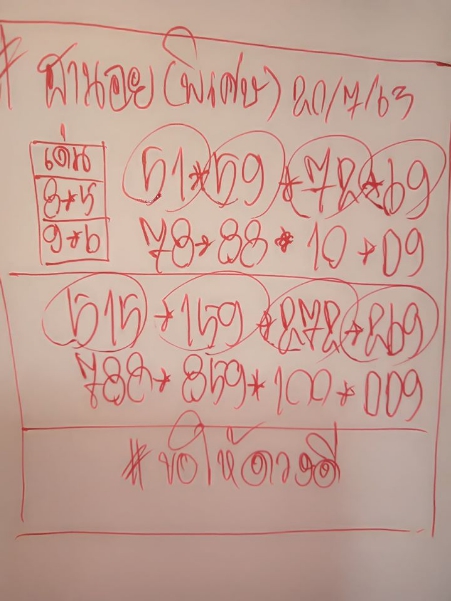 # ฮานอย (พิเศษ) 20/7/63
เด่น
8*5
6*9
51*59*72*69
78*88*10*09
515*159*272*269
788*859*100*009
#ขอให้ดวงดี